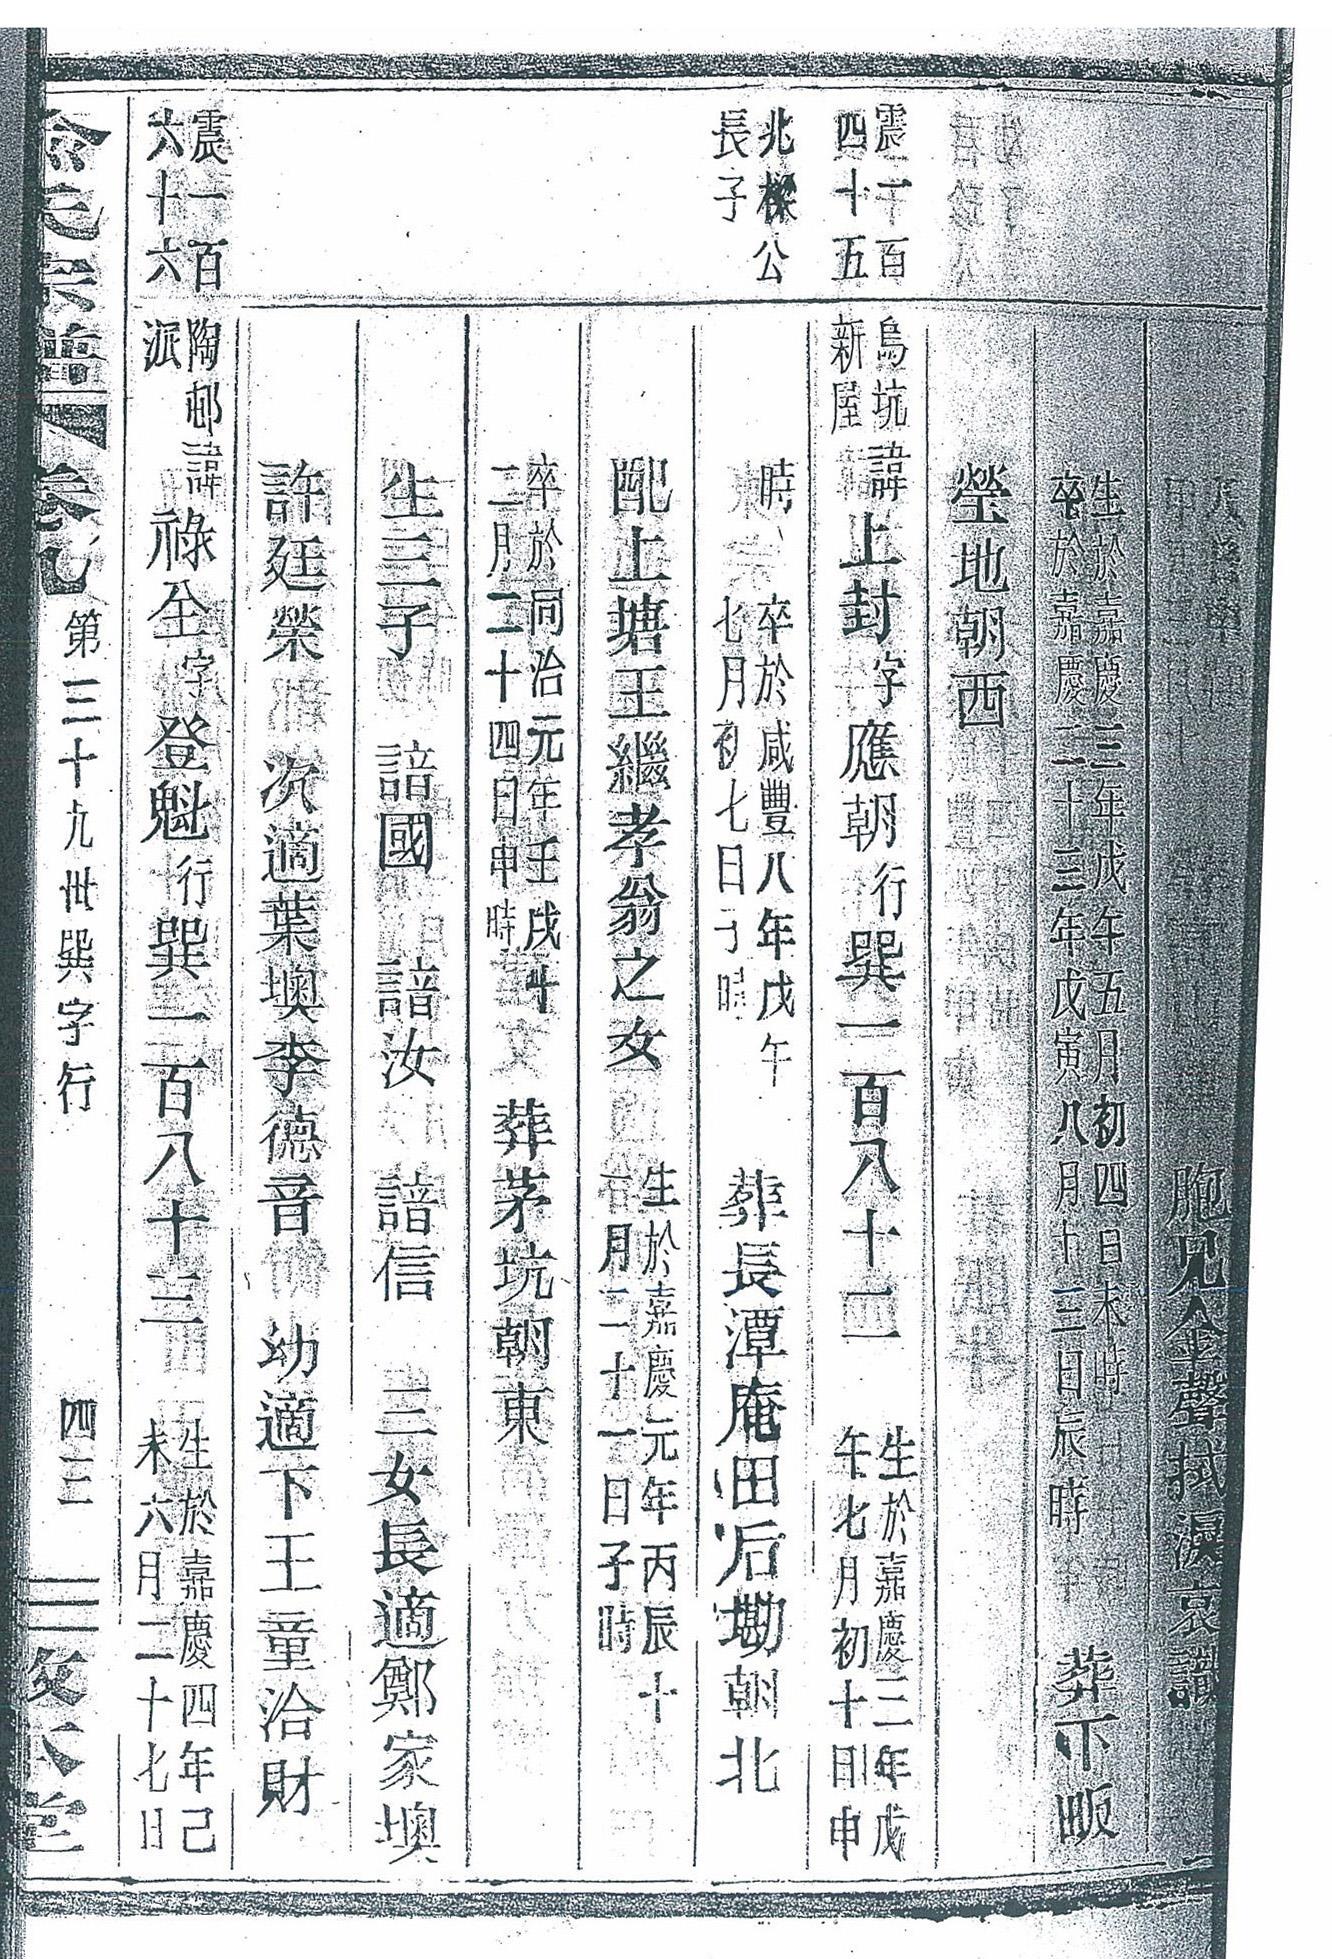 胞兄金聲拭淚哀譔
生於嘉慶三年戊午五月初四日未時
卒於嘉慶二十三年戊寅八月十三日辰時
葬下畈
塋地朝西
震一百
四十五
烏坑諱
新屋
上封字應朝行巽一百八十二
生於嘉慶三年戊
午七月初十日申
北樑公
長子
時
卒於咸豐八年戊午
七月初七日子時
葬長潭庵田后墈朝北
配上塘王繼孝翁之女
生於嘉慶元年丙辰十
月二十一日子時
卒於同治元年壬戌十
二月二十四日申時
葬茅坑朝東
生三子 諳國 諳汝 諳信 三女長適鄭家墺
許廷榮 次適葉墺李德音 幼適下王童洽財
震一百
六十六
陶邨諱
派
祿全字登魁行巽一百八十三
生於嘉慶四年己
未六月二十七日
俞氏宗譜 卷九 第三十九世巽字行 四三 敦本堂